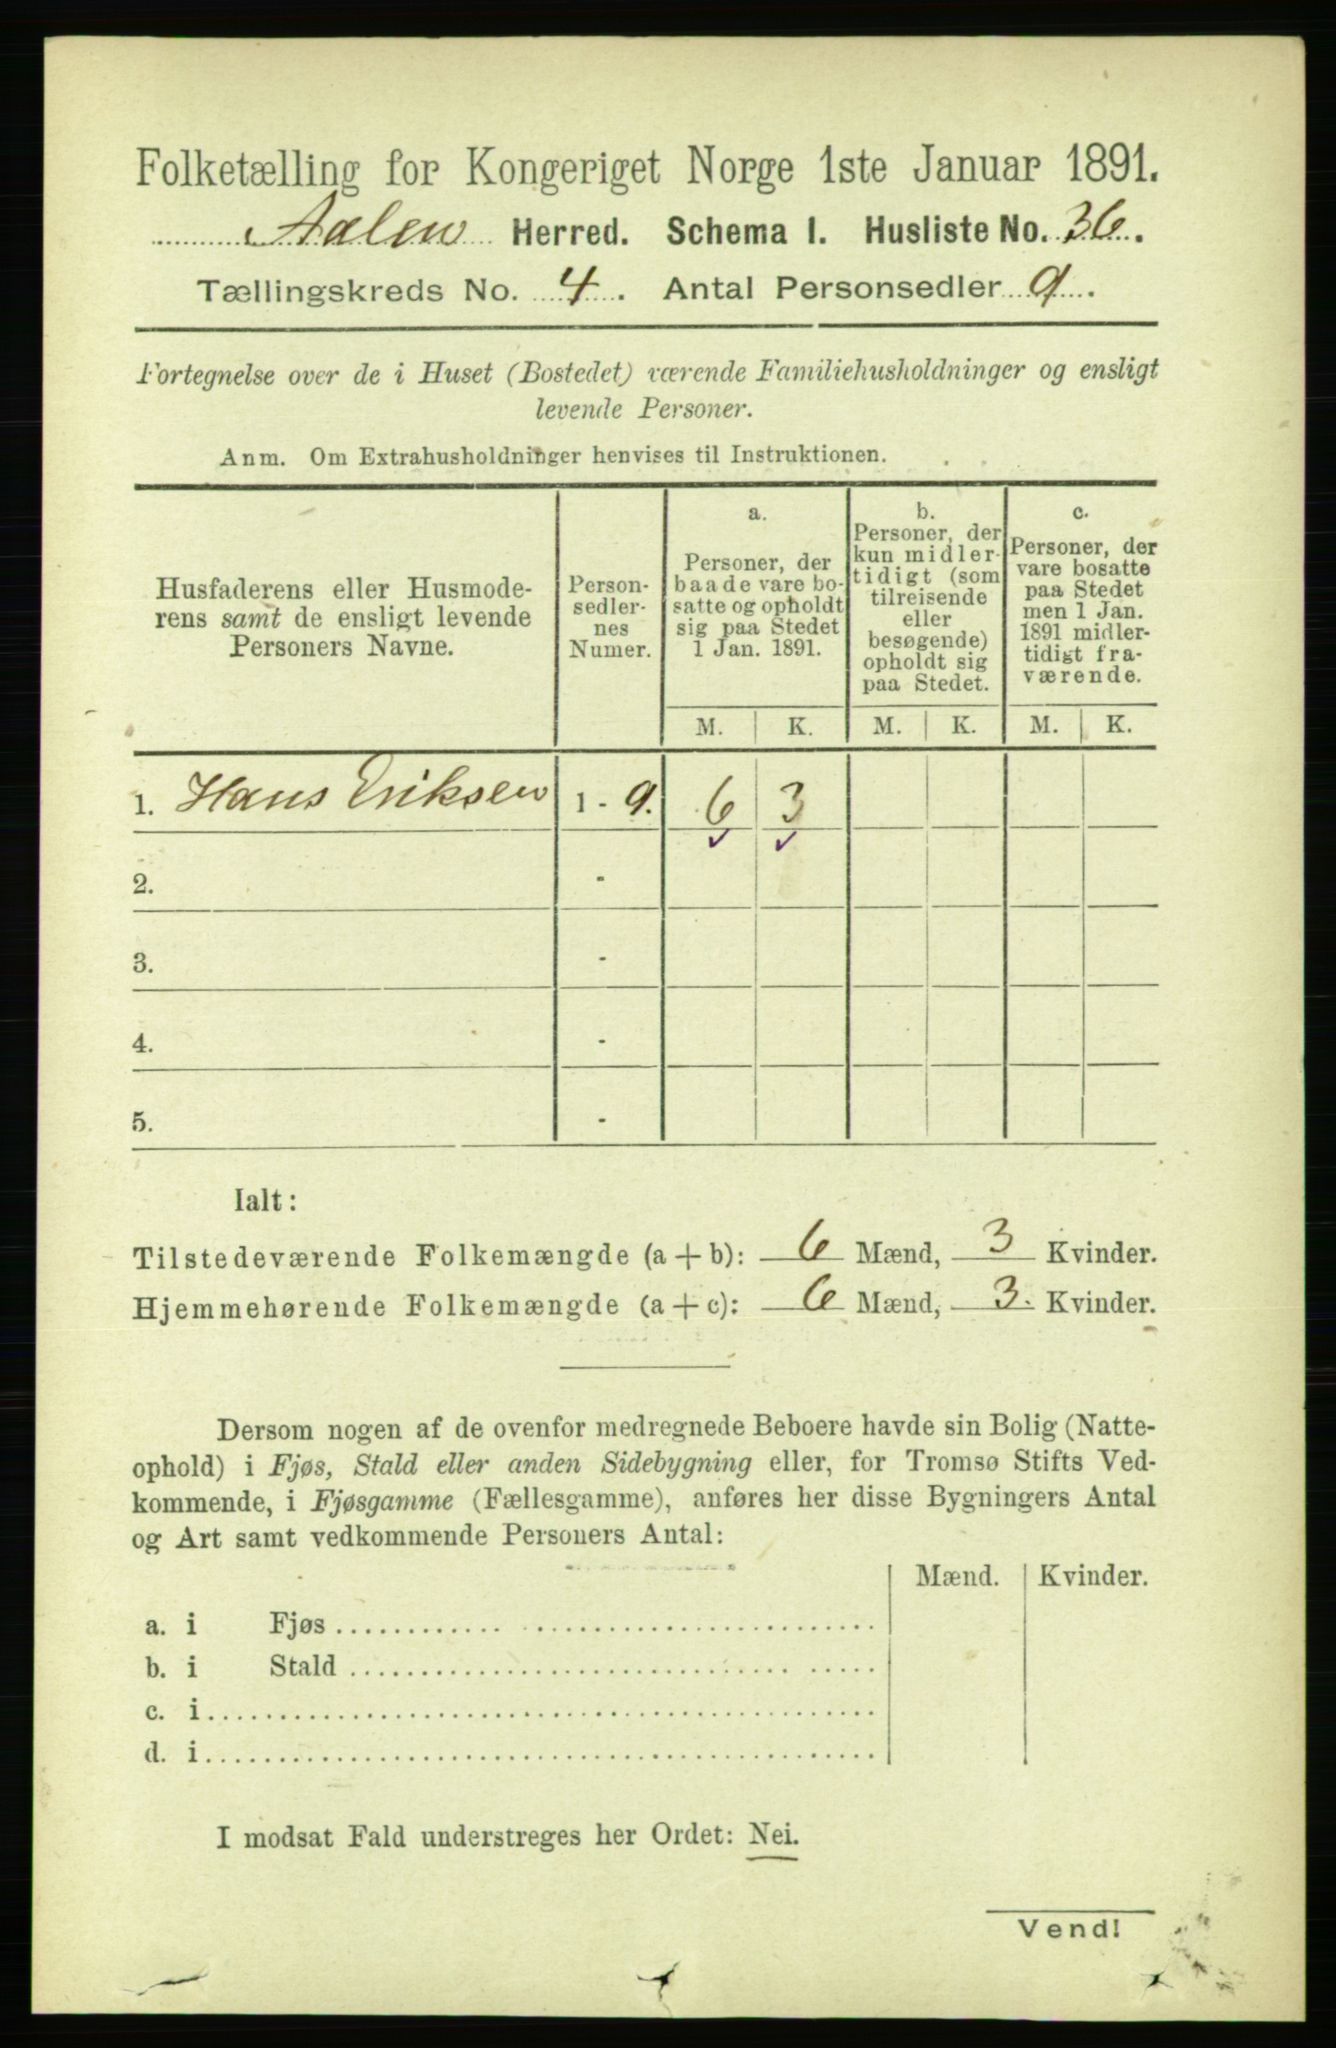 Folketælling for Kongeriget Norge 1ste Januar 1891.
Aalen Herred. Schema I. Husliste No. 36.
Tællingskreds No. 4. Antal Personsedler 9.
Fortegnelse over de i Huset (Bostedet) værende Familiehusholdninger og ensligt
levende Personer.
Anm. Om Extrahusholdninger henvises til Instruktionen.
Husfaderens eller Husmode-
rens samt de ensligt levende
Personers Navne.
Person-
sedler-
nes
Numer.
a.
Personer, der
baade vare bo-
satte og opholdt
sig paa Stedet
1 Jan. 1891.
b.
Personer, der
kun midler-
tidigt (som
tilreisende
eller
besøgende)
opholdt sig
paa Stedet.
c.
Personer, der
vare bosatte
paa Stedet
men 1 Jan.
1891 midler-
tidigt fra-
værende.
M. K. M. K. M. K.
1. Hans Eriksen 1 - 9. 6 3
2. -
3. -
4. -
5. -
Ialt:
Tilstedeværende Folkemængde (a + b): 6 Mænd, 3 Kvinder.
Hjemmehørende Folkemængde (a + c): 6 Mænd, 3. Kvinder.
Dersom nogen af de ovenfor medregnede Beboere havde sin Bolig (Natte-
ophold) i Fjøs, Stald eller anden Sidebygning eller, for Tromsø Stifts Ved-
kommende, i Fjøsgamme (Fællesgamme), anføres her disse Bygningers Antal
og Art samt vedkommende Personers Antal:
Mænd. Kvinder.
a. i Fjøs
b. i Stald
c. i
d. i
I modsat Fald understreges her Ordet: Nei.
Vend!